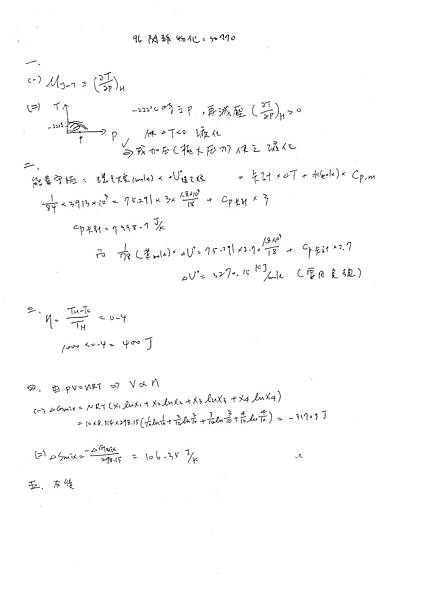 一.
(一) μJ-T = (∂T/∂P)H
(二) T
P
-222°C 時 P, 再減壓 (∂T/∂P)H > 0
使 ΔT<0 液化
⇒ 或加壓(極大壓力)使之液化
二.
能量守恆: × ΔU° = 卡計 × ΔT + 水(mole) × Cp,m
1/84 × 3913×10³ = 75.291 × 3 × 1.8×10³/18 + Cp卡計 × 3
Cp卡計 = 7998.7 J/K
而 1/78 (苯mole) × ΔU° = 75.291 × 2.7 × 1.8×10³/18 + Cp卡計 × 2.7
ΔU° = 3270.15 KJ/mole
三.
η = (TH-TC)/TH = 0.4
1000 × 0.4 = 400 J
四. 由 PV=nRT ⇒ V∝n
(一) ΔGmix = nRT (X1 lnX1 + X2 lnX2 + X3 lnX3 + X4 lnX4)
= 10×8.314×298.15 (1/10 ln 1/10 + 2/10 ln 2/10 + 3/10 ln 3/10 + 4/10 ln 4/10) = -31709 J
(二) ΔSmix = -ΔGmix/298.15 = 106.35 J/K
五.